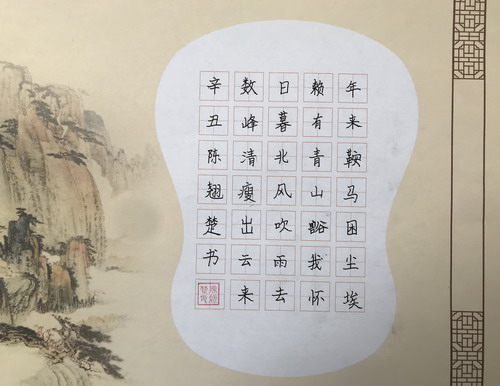 年来鞍马困尘埃
赖有青山豁我怀
日暮北风吹雨去
数峰清瘦出云来
辛丑陈翘楚书